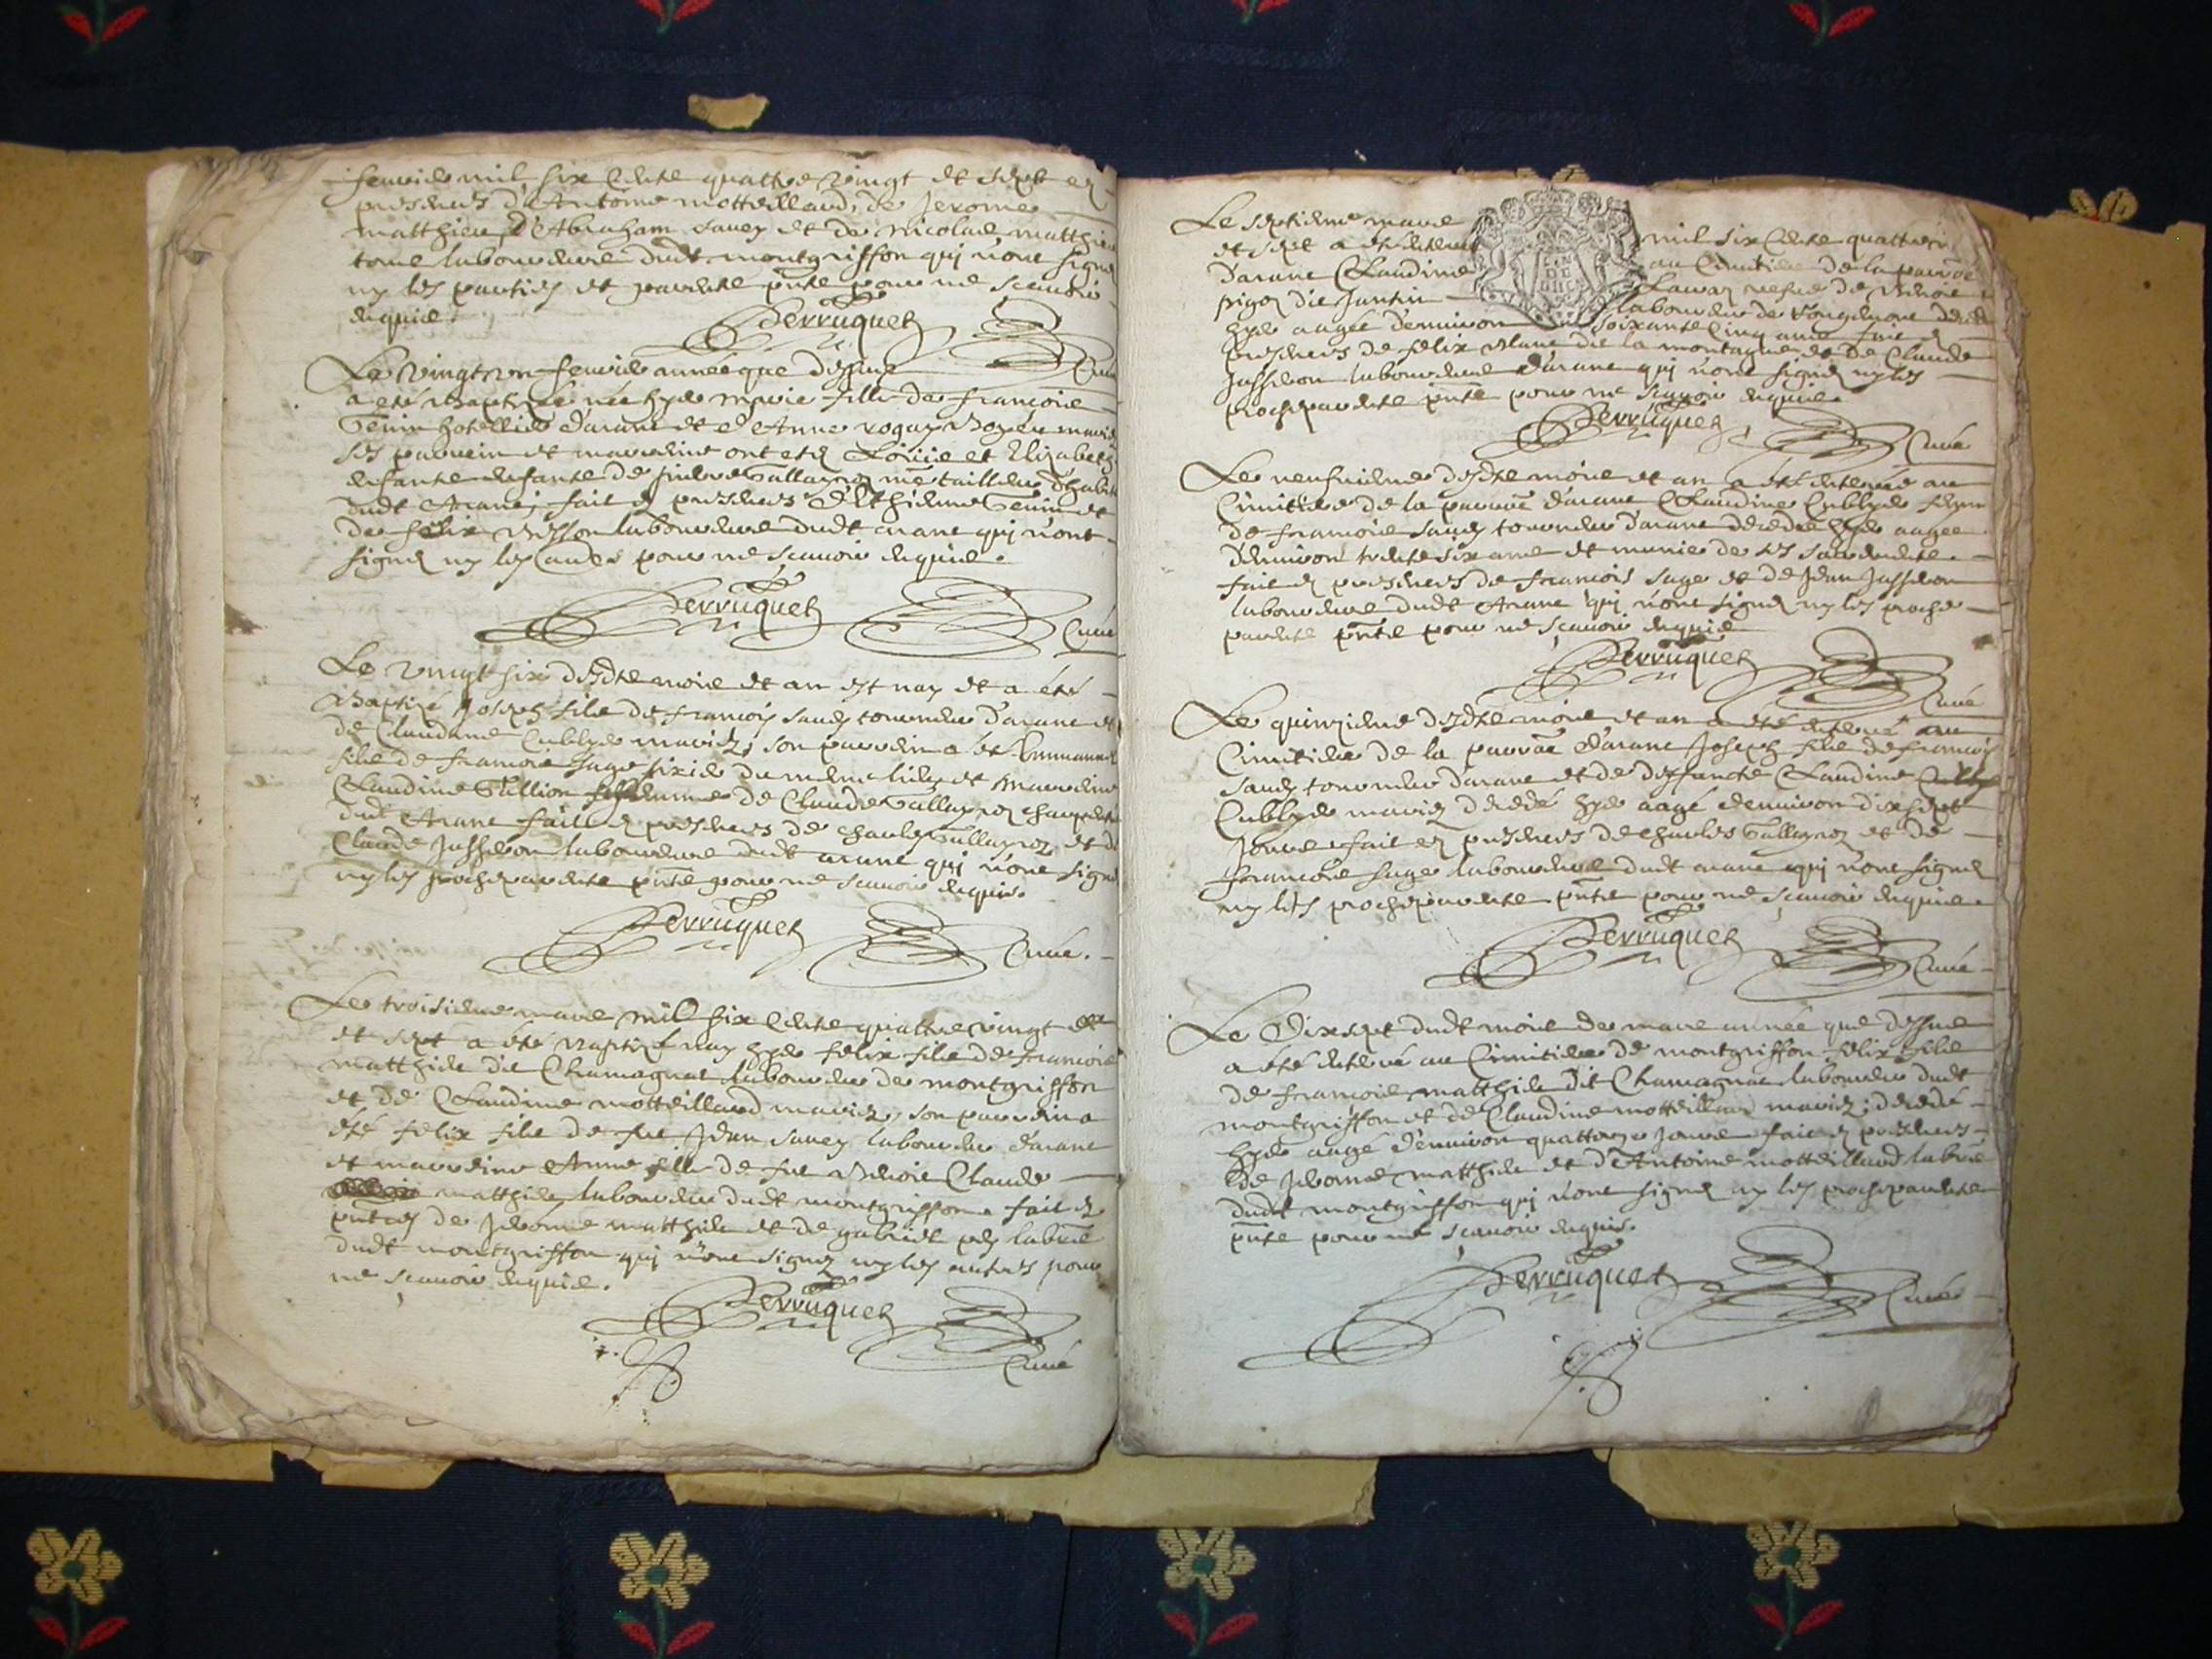 feurier mil six cents quattre vingt et sept en
presences d'Antoine motteillard, de Jerome
matthieu, d'Abraham sauey et de nicolas matthieu
tous laboureurs dudt montgriffon qui n'ont signé
ny les parties et parents pnts pour ne scauoir
enquis.
Perruquet Curé
Le vingt un feurier année que dessus
a eté baptizée née hyer marie fille de françois
Genin hotellier d'arane et d'Anne mariés
ses parrein et marreine ont etés et Elizabeth
enfants de Gallayroz me tailleur d'habits
dudt Arane, fait en presences d'Ethienne Genin et
de felix laboureurs dudt arane qui n'ont
signé ny les pour ne scauoir enquis.
Perruquet Curé
Le vingt six desdts mois et an est nay et a été
Baptizé Joseph fils de françois sauey tourneur d'arane et
de Claudine Cublyer mariez, son parrein a été Emmanuel
fils de françois sage du mesme lieu et marreine
Claudine Gullion femme de Claude Gallayroz
dudt Arane fait en presences de charles Gallayroz et de
Claude Jusseron laboureurs dudt arane qui n'ont signé
ny les proches parents pnts pour ne scauoir enquis.
Perruquet Curé.
Le troisieme mars mil six cents quattre vingt
et sept a été baptizé nay hyer felix fils de françois
matthieu dit Chamagnat laboureur de montgriffon
et de Claudine mottEillard mariez, son parrein a
été felix fils de feu Jean sauey laboureur d'arane
et marreine Anne fille de feu Claude
matthieu laboureur dudt montgriffon fait en
pntces de Jerome matthieu et de gabriel labrs
dudt montgriffon qui n'ont signez ny les autres pour
ne scauoir enquis.
Perruquet Curé
Le septieme mars mil six cents quattre
et sept a été enterrée au Cimitiere de la parroe
d'arane Claudine vefue de
dit Jantin laboureur de
hyer aagée d'enuiron soixante cinq ans fait en
presences de felix dit la montagne et de Claude
Jusseron laboureurs d'arane qui n'ont signé ny les
proches parents pnts pour ne scauoir enquis.
Perruquet Curé
Le neufuieme desdts mois et an a été enterrée au
Cimitiere de la parroe d'arane Claudine Cublyer femme
de françois sauey tourneur d'arane decedée hyer aagée
d'enuiron trente six ans et munie de ses sacrements.
fait en presences de françois sage et de Jean Jusseron
laboureurs dudt Arane qui n'ont signé ny les proches
parents pnts pour ne scauoir enquis
Perruquet Curé
Le quinzieme desdts mois et an a été enterré au
Cimitiere de la parroe d'arane Joseph fils de françois
sauey tourneur d'arane et de deffuncte Claudine
Cublyer mariez decedé hyer aagé d'enuiron dix sept
Jours fait en presences de charles Gallayroz et de
françois sage laboureurs dudt arane qui n'ont signé
ny les proches parents pnts pour ne scauoir enquis.
Perruquet Curé
Le Dixsept dudt mois de mars année que dessus
a été enterré au Cimitiere de montgriffon felix fils
de françois matthieu dit Chamagnat laboureur dudt
montgriffon et de Claudine mottEillard mariez; decedé
hyer aagé d'enuiron quattorze Jours fait en presences
de Jerome matthieu et d'Antoine mottEillard labrs
dudt montgriffon qui n'ont signé ny les proches parents
pnts pour ne scauoir enquis.
Perruquet Curé